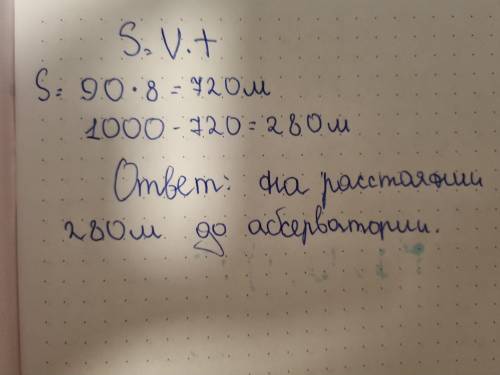 S = V · t
S = 90 · 8 = 720м
1000 - 720 = 280м
Ответ: на расстоянии
280м до абсерватории.